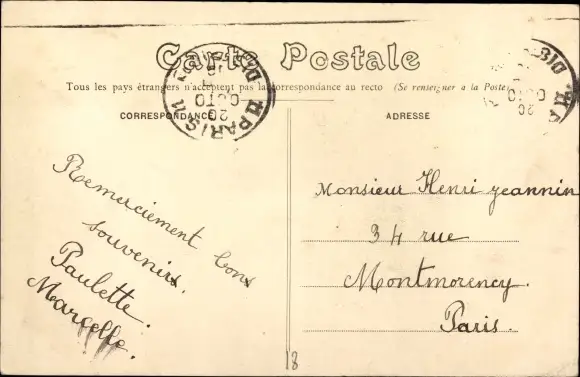 Carte Postale
Tous les pays étrangers n'acceptent pas la correspondance au recto (Se renseigner a la Poste)
CORRESPONDANCE
ADRESSE
PARIS
20
OCTO
20
OCTO
Remerciement bons
souvenirs.
Paulette.
Marcelle.
Monsieur Henri Jeannin
34 rue
Montmorency.
Paris.
18